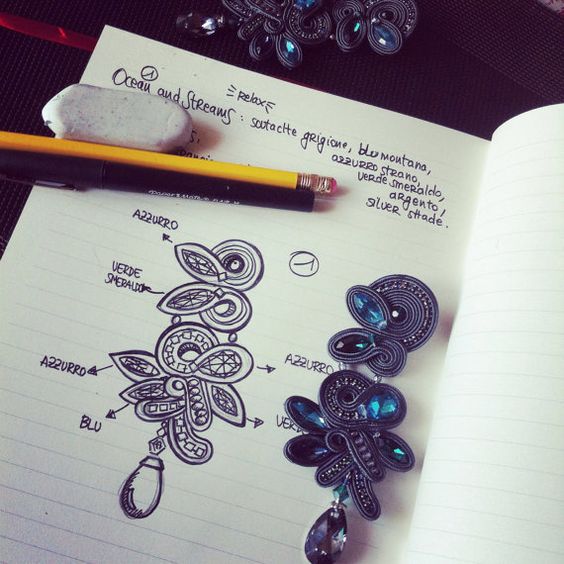 1
Ocean and Streams : soutactte grigione, blu montana,
relax
azzurro strano,
verde smeraldo,
argento,
silver shade.
AZZURRO
1
VERDE
SMERALDO
AZZURRO
AZZURRO
BLU